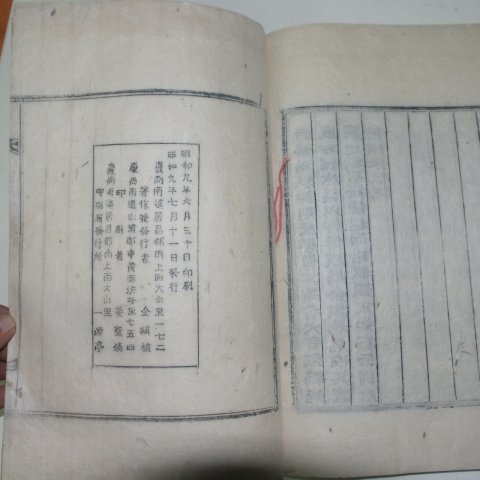 昭和九年六月三十日印刷
昭和九年七月十一日發行
慶尚南道居昌郡南上面大山里一七二
著作兼發行者 金
慶尚南道山淸郡 里七五四
印刷者 姜
慶尚南道居昌郡南上面大山里
印刷兼發行所 一 亭